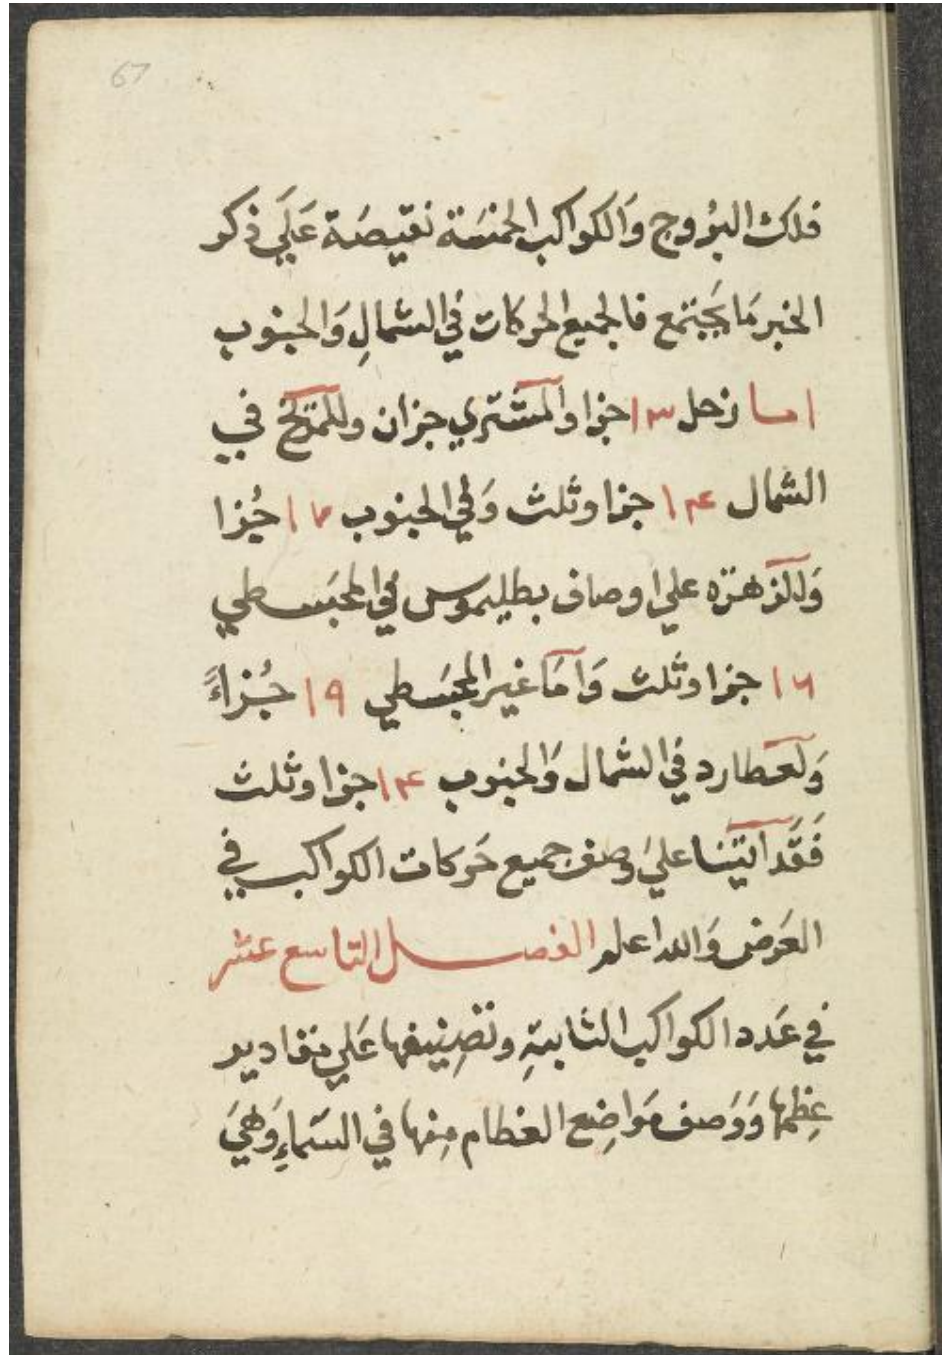 67
فلك البُروج وَالكواكب الخمسَة نقيصَة عَلَي ذكر
الخبر مَا يَجتمع فالجميع الحركات في الشمالِ وَالجنوب
اما زحل ١٣ جزا والمشتري جزان وللمريخ في
الشمال ١٤ جزا وثلث وَفي الجنوب ١٧ جُزا
وَللزهرَه علي اوصاف بطليموس في المجَسطي
١٦ جزا وثلث وَامَا غير المجَسطي ١٩ جُزاءً
وَلعَطارد في الشمال وَالجنوب ١٤ جزا وثلث
فَقَد اتَينَا علي وصف جميع حَركات الكواكب في
العَرض وَالله اعلم الفصل التاسع عشر
في عَدد الكواكب الثابتةِ وتصِنيفها عَلي مقادير
عِظمها وَوَصف مَواضِع العظام مِنها في السَماءِ وَهيَ